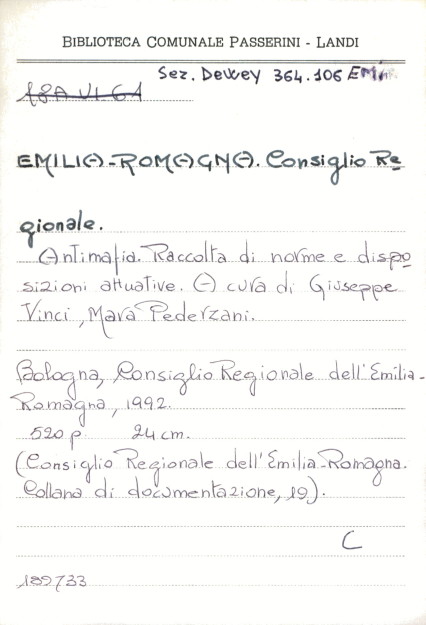 BIBLIOTECA COMUNALE PASSERINI - LANDI
Sez. Dewey 364.106 EMI
18A VI 61
EMILIA-ROMAGNA. Consiglio Re
gionale.
Antimafia. Raccolta di norme e dispo
sizioni attuative. A cura di Giuseppe
Vinci, Mara Pederzani.
Bologna, Consiglio Regionale dell'Emilia-
Romagna, 1992.
520 p. 24 cm.
(Consiglio Regionale dell'Emilia-Romagna.
Collana di documentazione, 19).
C
189733